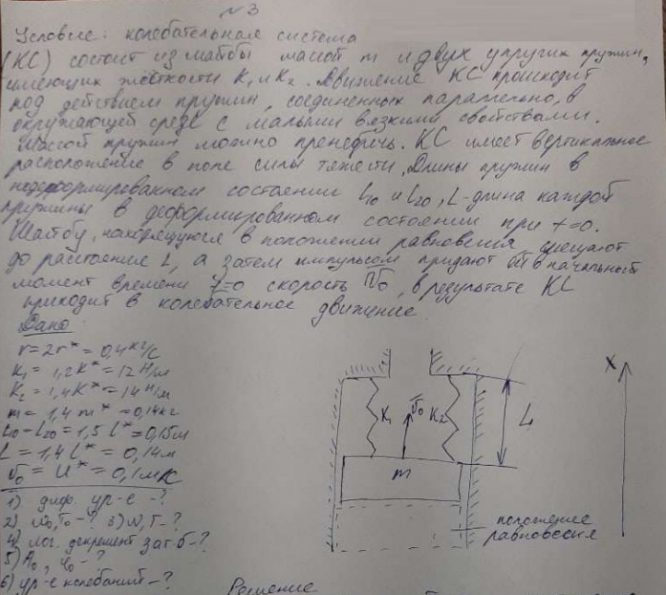 №3
Условие: колебательная система
(КС) состоит из шайбы массой m и двух упругих пружин,
имеющих жёсткости K₁ и K₂. Движение КС происходит
под действием пружин, соединенных параллельно, в
окружающей среде с малыми вязкими свойствами.
Массой пружин можно пренебречь. КС имеет вертикальное
расположение в поле силы тяжести. Длины пружин в
недеформированном состоянии L₁₀ и L₂₀, L-длина каждой
пружины в деформированном состоянии при t=0.
Шайбу, находящуюся в положении равновесия, смещают
до расстояние L, а затем импульсом придают ей в начальный
момент времени t=0 скорость V̄₀, в результате КС
приходит в колебательное движение.
Дано
r=2r*=0,4 кг/с
K₁=1,2K*=12 Н/м
K₂=1,4K*=14 Н/м
m=1,4 m*=0,14 кг
L₁₀=L₂₀=1,5 l*=0,15м
L=1,4 l*=0,14м
V̄₀=U*=0,1м/с
1) диф. ур-е -?
2) ω₀,T₀-? 3) ω,T-?
4) лог. декремент зат-я-?
5) A₀, φ₀-?
6) ур-е колебаний-?
Решение
K₁
V̄₀
K₂
L
X
m
положение
равновесия